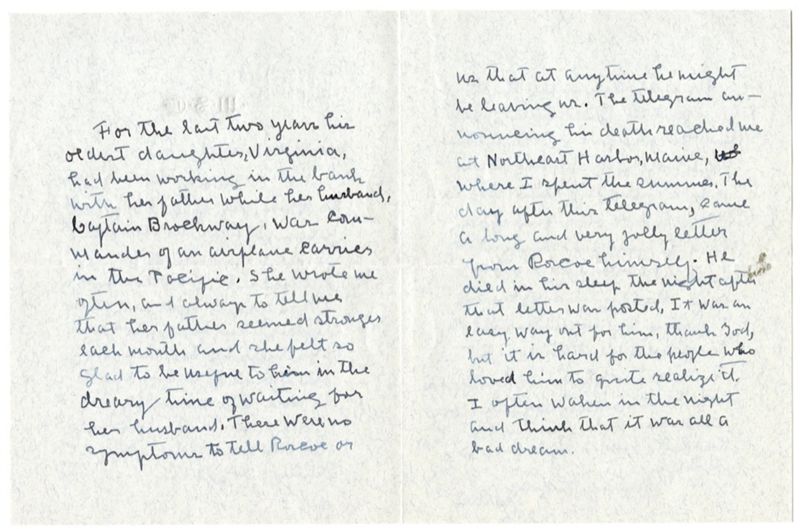 For the last two years his
oldest daughter, Virginia,
had been working in the bank
with her father while her husband,
Captain Brockway, was com-
mander of an airplane carrier
in the Pacific. She wrote me
often, and always to tell me
that her father seemed stronger
each month and she felt so
glad to be useful to him in the
dreary time of waiting for
her husband. There were no
symptoms to tell Roscoe or
us that at anytime he might
be leaving us. The telegram an-
nouncing his death reached me
at Northeast Harbor, Maine,
where I spent the summer. The
day after this telegram, came
a long and very jolly letter
from Roscoe himself. He
died in his sleep the night after
that letter was posted. It was an
easy way out for him, thank God,
but it is hard for the people who
loved him to quite realize it.
I often waken in the night
and think that it was all a
bad dream.